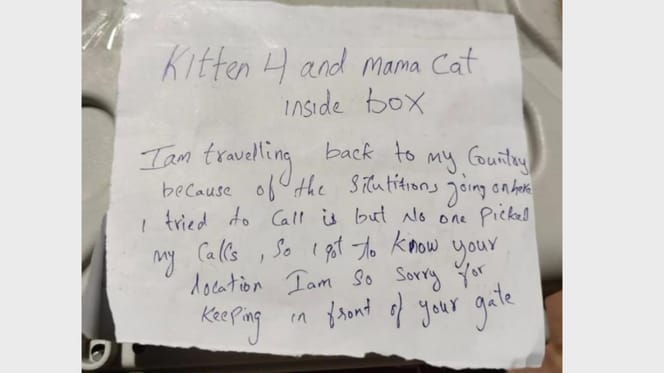 Kitten 4 and mama cat
inside box
Iam travelling back to my Country
because of the Situtitions going on here
i tried to Call is but No one Picked
my Calls, So i got to Know your
location Iam so sorry for
Keeping in front of your gate